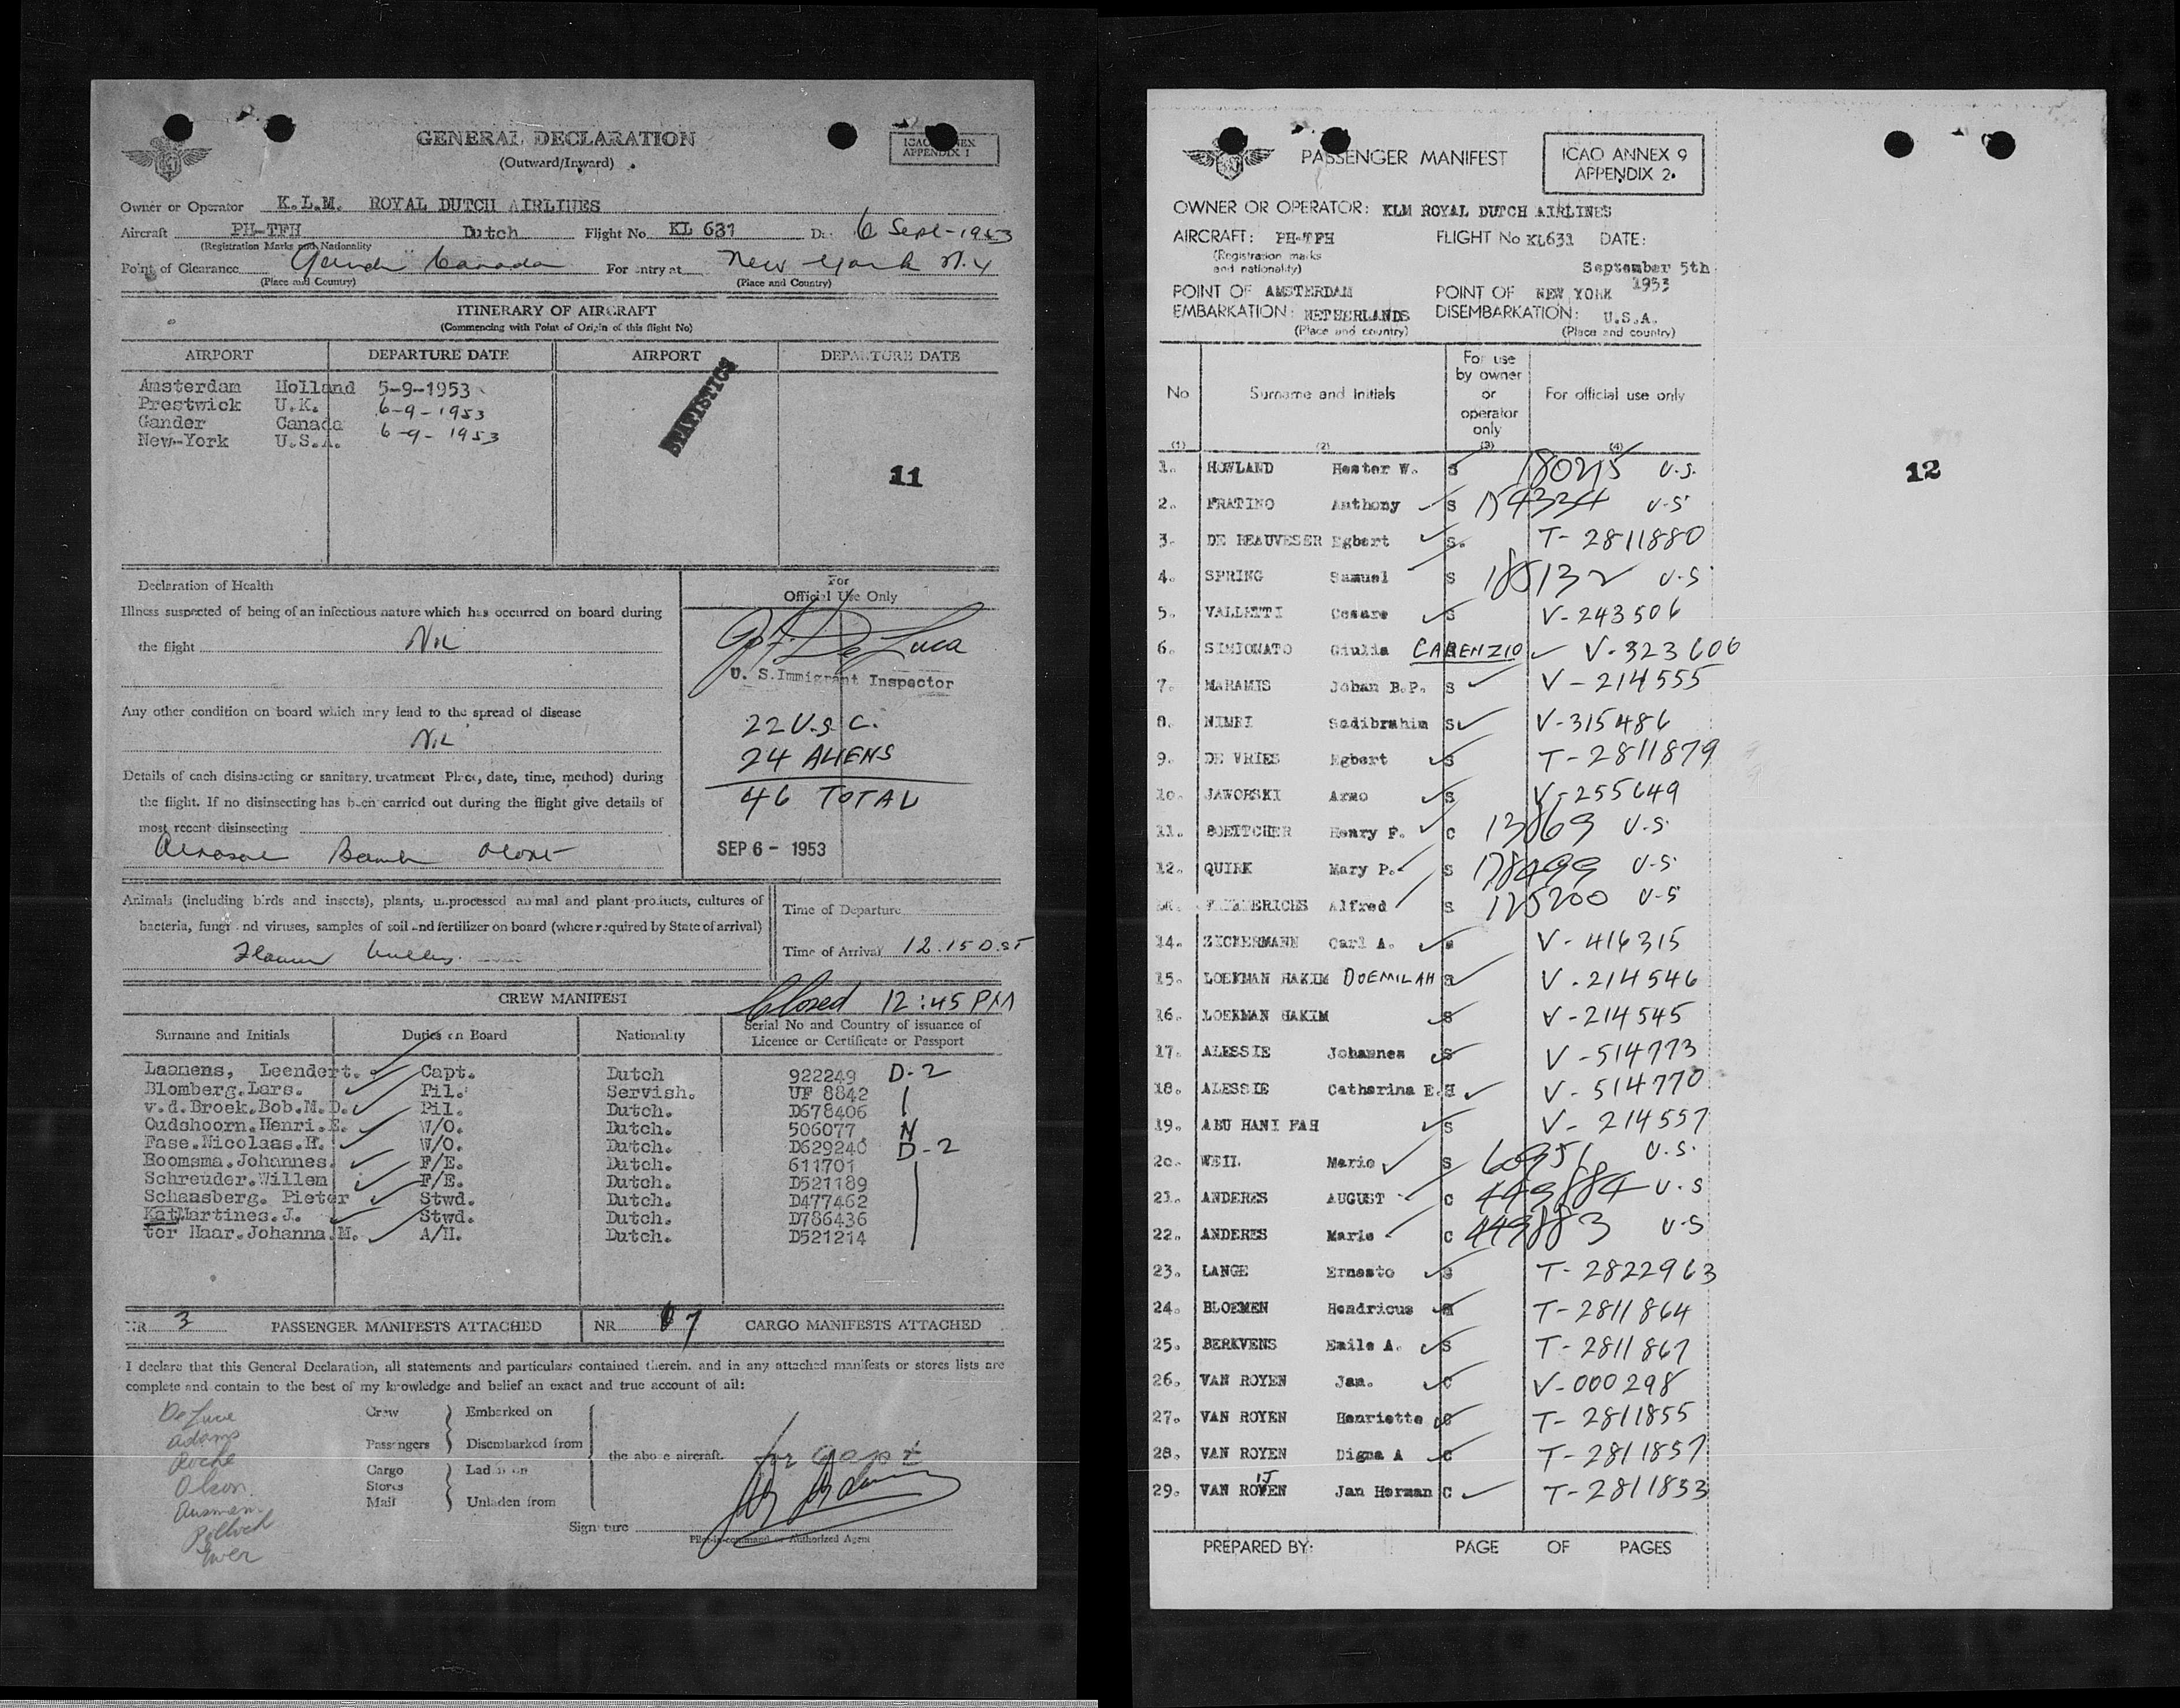 GENERAL DECLARATION
(Outward/Inward)
ICAO ANNEX
APPENDIX 1
Owner or Operator K.L.M. ROYAL DUTCH AIRLINES
Aircraft PH-TFH Dutch Flight No KL 631 D 6 Sept-1953
(Registration Marks and Nationality
Point of Clearance Gander Canada For entry at New York N.Y
(Place and Country) (Place and Country)
ITINERARY OF AIRCRAFT
(Commencing with Point of Origin of this flight No)
AIRPORT DEPARTURE DATE AIRPORT DEPARTURE DATE
Amsterdam Holland 5-9-1953
Prestwick U.K. 6-9-1953
Gander Canada 6-9-1953
New-York U.S.A.
STATISTICS
11
Declaration of Health
Illness suspected of being of an infectious nature which has occurred on board during
the flight Nil
Any other condition on board which may lead to the spread of disease
Nil
Details of each disinsecting or sanitary treatment Place, date, time, method) during
the flight. If no disinsecting has been carried out during the flight give details of
most recent disinsecting
Aerosol Bomb
For
Official Use Only
De Luca
U. S. Immigrant Inspector
22 U.S.C.
24 ALIENS
46 TOTAL
SEP 6 - 1953
Animals (including birds and insects), plants, unprocessed animal and plant products, cultures of
bacteria, fungi and viruses, samples of soil and fertilizer on board (where required by State of arrival)
Flower bulbs
Time of Departure
Time of Arrival 12.15 D.ST
Closed 12:45 PM
CREW MANIFEST
Surname and Initials Duties on Board Nationality Serial No and Country of issuance of
Licence or Certificate or Passport
Laanens, Leendert. Capt. Dutch 922249 D-2
Blomberg.Lars. Pil. Servish. UF 8842
v.d.Broek.Bob.M.D. Pil. Dutch. D678406
Oudshoorn.Henri.E. W/O. Dutch. 506077 N
Fase.Nicolaas.H. W/O. Dutch. D629240 D-2
Boomsma.Johannes. F/E. Dutch. 611701
Schreuder.Willem F/E. Dutch. D521189
Schaasberg. Pieter Stwd. Dutch. D477462
Kat Martines.J. Stwd. Dutch. D786436
ter Haar.Johanna.M. A/H. Dutch. D521214
NR 3 PASSENGER MANIFESTS ATTACHED NR 7 CARGO MANIFESTS ATTACHED
I declare that this General Declaration, all statements and particulars contained therein, and in any attached manifests or stores lists are
complete and contain to the best of my knowledge and belief an exact and true account of all:
De Luca
Adams
Roche
Olson
Crew Embarked on
Passengers Disembarked from
Cargo Laden on
Stores
Mail Unladen from
the above aircraft.
for Capt
Signature
Pilot-in-command or Authorized Agent
PASSENGER MANIFEST
ICAO ANNEX 9
APPENDIX 2
OWNER OR OPERATOR: KLM ROYAL DUTCH AIRLINES
AIRCRAFT: PH-TFH FLIGHT No KL631 DATE:
(Registration marks
and nationality) September 5th
1953
POINT OF AMSTERDAM POINT OF NEW YORK
EMBARKATION: NETHERLANDS DISEMBARKATION: U.S.A.
(Place and country) (Place and country)
No Surname and Initials For use by owner or operator only For official use only
(1) (2) (3) (4)
1. HOWLAND Hester W. S 180215 U.S.
2. FRATINO Anthony S U.S
3. DE BEAUVESER Egbert S. T-2811880
4. SPRING Samuel S 185132 U.S
5. VALLETTI Cesare S V-243506
6. SIMIONATO Giulia CARENZIO V-323606
7. MARAMIS Johan B.P. S V-214555
8. NIMBI Sadibrahim S V-315486
9. DE VRIES Egbert S T-2811879
10. JAWORSKI Arno S V-255649
11. BOETTCHER Henry F. C 13869 U.S.
12. QUIRK Mary P. S 178499 U.S
Alfred S 125200 U.S
14. ZICKERMANN Carl A. V-416315
15. LOEKMAN HAKIM DJEMILAH S V-214546
16. LOEKMAN HAKIM S V-214545
17. ALESSIE Johannes S V-514773
18. ALESSIE Catharina E.H V-514770
19. ABU HANI FAH S V-214557
20. WEIL Marie S 60951 U.S.
21. ANDERES AUGUST C 449884 U.S
22. ANDERES Marie C 449883 U.S
23. LANGE Ernesto S T-2822963
24. BLOEMEN Hendricus T-2811864
25. BERKVENS Emile A. S T-2811867
26. VAN ROYEN Jan. C V-000298
27. VAN ROYEN Henriette C T-2811855
28. VAN ROYEN Digna A C T-2811857
29. VAN ROYEN IJ Jan Herman C T-2811853
12
PREPARED BY: PAGE OF PAGES